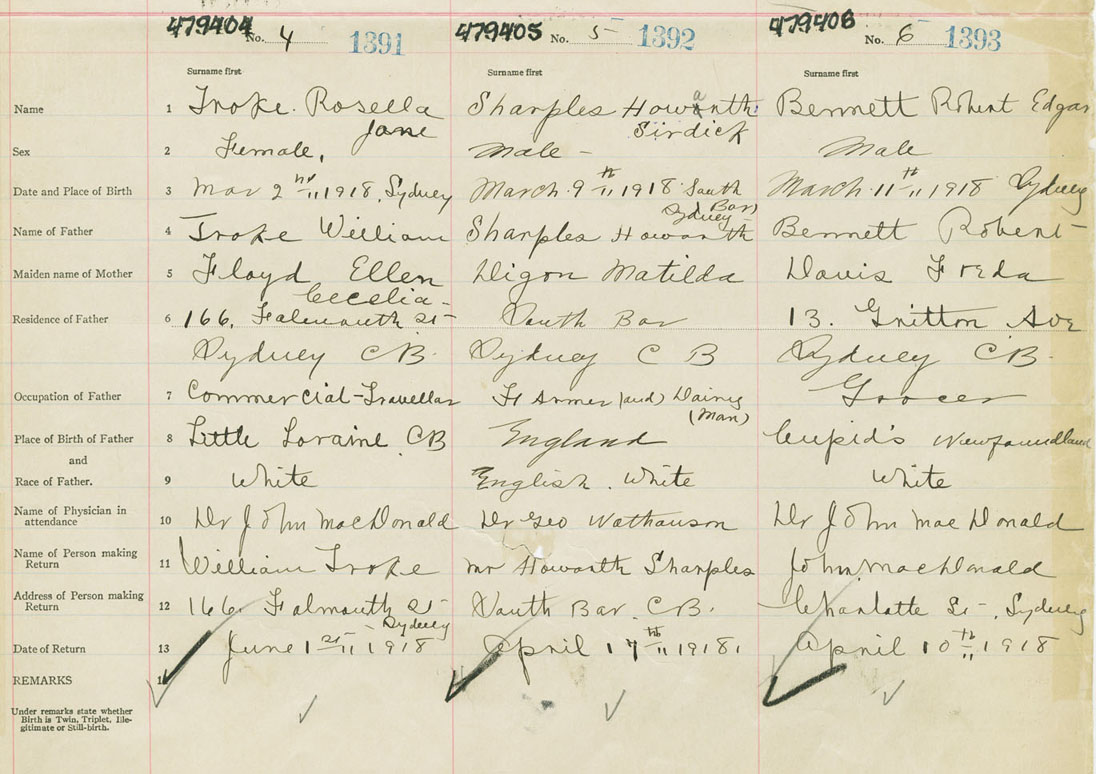 479404 No. 4 1391 479405 No. 5 1392 479406 No. 6 1393
Surname first Surname first Surname first
Name 1 Troke. Rosella Sharples Howarth Bennett Robert Edgar
Jane Sirdick
Sex 2 Female, Male - Male
Date and Place of Birth 3 Mar 2nd " 1918, Sydney March 9th " 1918 South March 11th " 1918 Sydney
Sydney Bar)
Name of Father 4 Troke William Sharples Howarth Bennett Robert
Maiden name of Mother 5 Floyd Ellen Digon Matilda Davis Freda
Cecelia -
Residence of Father 6 166, Falmouth St South Bar 13. Gritton Ave
Sydney C B. Sydney C B Sydney C B.
Occupation of Father 7 Commercial-Traveller Farmer (and) Dairy Grocer
(Man)
Place of Birth of Father 8 Little Loraine CB England Cupid's Newfoundland
and
Race of Father. 9 White English. White White
Name of Physician in
attendance 10 Dr John MacDonald Dr Geo Dr John MacDonald
Name of Person making
Return 11 William Troke Mr Howarth Sharples John MacDonald
Address of Person making
Return 12 166. Falmouth St South Bar C.B. Charlotte St -, Sydney
Sydney
Date of Return 13 June 1st " 1918 April 17th " 1918, April 10th " 1918
REMARKS 14
Under remarks state whether
Birth is Twin, Triplet, Ille-
gitimate or Still-birth.